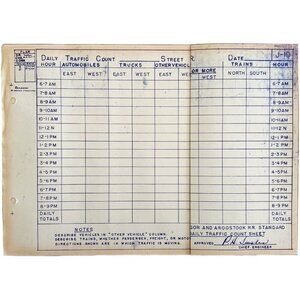 DAILY TRAFFIC COUNT STREET R. DATE
HOUR AUTOMOBILES TRUCKS OTHER VEHICL OR MORE TRAINS HOUR
J-10
EAST WEST EAST WEST EAST WEST NORTH SOUTH
6-7 AM 6-7 AM
7-8 AM 7-8 AM
8-9 AM 8-9 AM
9-10 AM 9-10 AM
10-11 AM 10-11 AM
11-12 N 11-12 N
12-1 PM 12-1 PM
1-2 PM 1-2 PM
2-3 PM 2-3 PM
3-4 PM 3-4 PM
4-5 PM 4-5 PM
5-6 PM 5-6 PM
6-7 PM 6-7 PM
7-8 PM 7-8 PM
8-9 PM 8-9 PM
DAILY TOTALS DAILY TOTALS
NOTES
DESCRIBE VEHICLES IN "OTHER VEHICLE" COLUMN.
DESCRIBE TRAINS, WHETHER PASSENGER, FREIGHT, OR MOTOR
DIRECTIONS SHOWN ARE IN WHICH TRAFFIC IS MOVING.
GOR AND AROOSTOOK R.R. STANDARD
DAILY TRAFFIC COUNT SHEET
APPROVED
CHIEF ENGINEER